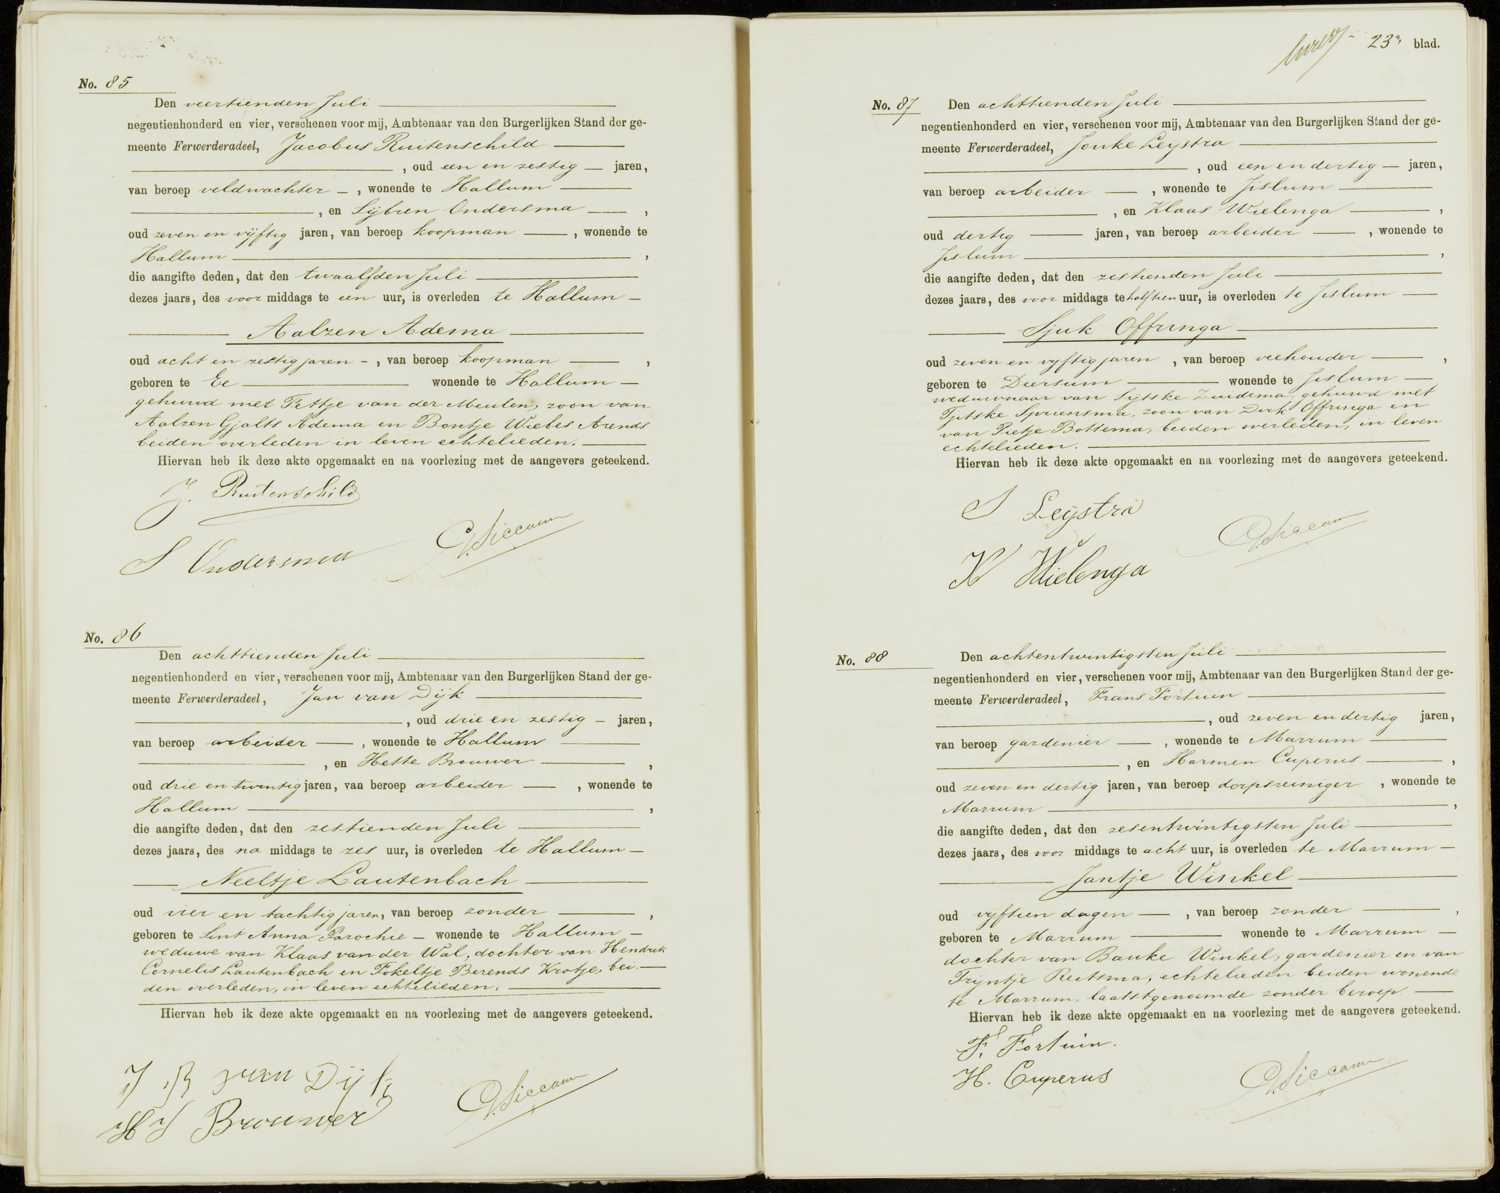 No. 85
Den veertienden Juli
negentienhonderd en vier, verschenen voor mij, Ambtenaar van den Burgerlijken Stand der ge-
meente Ferwerderadeel, Jacobus Ruitenschild
, oud een en zestig jaren,
van beroep veldwachter , wonende te Hallum
, en Sijbren Ondersma ,
oud zeven en vijftig jaren, van beroep koopman , wonende te
Hallum ,
die aangifte deden, dat den twaalfden Juli
dezes jaars, des voor middags te een uur, is overleden te Hallum
Aalzen Adema
oud acht en zestig jaren , van beroep koopman ,
geboren te Ee wonende te Hallum
gehuwd met Tettje van der Meulen, zoon van
Aalzen Gjalts Adema en Bontje Wiebes Arends
beiden overleden in leven echtelieden.
Hiervan heb ik deze akte opgemaakt en na voorlezing met de aangevers geteekend.
J. Ruitenschild
S Ondersma
No. 86
Den achttienden Juli
negentienhonderd en vier, verschenen voor mij, Ambtenaar van den Burgerlijken Stand der ge-
meente Ferwerderadeel, Jan van Dijk
, oud drie en zestig jaren,
van beroep arbeider , wonende te Hallum
, en Hette Brouwer ,
oud drie en twintig jaren, van beroep arbeider , wonende te
Hallum ,
die aangifte deden, dat den zestienden Juli
dezes jaars, des na middags te zes uur, is overleden te Hallum
Neeltje Lautenbach
oud vier en tachtig jaren, van beroep zonder ,
geboren te Sint Anna Parochie wonende te Hallum
weduwe van Klaas van der Wal, dochter van Hendrik
Cornelis Lautenbach en Fokeltje Berends Krotje, bei-
den overleden, in leven echtelieden.
Hiervan heb ik deze akte opgemaakt en na voorlezing met de aangevers geteekend.
van Dijk
H J Brouwer
23e blad.
No. 87 Den achttienden Juli
negentienhonderd en vier, verschenen voor mij, Ambtenaar van den Burgerlijken Stand der ge-
meente Ferwerderadeel, Jouke Leystra
, oud een en dertig jaren,
van beroep arbeider , wonende te Jislum
, en Klaas Wielenga ,
oud dertig jaren, van beroep arbeider , wonende te
Jislum ,
die aangifte deden, dat den zestienden Juli
dezes jaars, des voor middags te half tien uur, is overleden te Jislum
Sjuk Offringa
oud zeven en vijftig jaren , van beroep veehouder ,
geboren te Diersum wonende te Jislum
weduwnaar van Sijtske Zuidema, gehuwd met
Tjitske Spriensma, zoon van Dirk Offringa en
van Pietje Bottema, beiden overleden, in leven
echtelieden.
Hiervan heb ik deze akte opgemaakt en na voorlezing met de aangevers geteekend.
J Leijstra
K Wielenga
No. 88 Den achtentwintigsten Juli
negentienhonderd en vier, verschenen voor mij, Ambtenaar van den Burgerlijken Stand der ge-
meente Ferwerderadeel, Frans Fortuin
, oud zeven en dertig jaren,
van beroep gardenier , wonende te Marrum
, en Harmen Cuperus ,
oud zeven en dertig jaren, van beroep dorpsreiniger , wonende te
Marrum ,
die aangifte deden, dat den zesentwintigsten Juli
dezes jaars, des voor middags te acht uur, is overleden te Marrum
Jantje Winkel
oud vijftien dagen , van beroep zonder ,
geboren te Marrum wonende te Marrum
dochter van Bauke Winkel, gardenier en van
Trijntje Reitsma, echtelieden beiden wonende
te Marrum, laatstgenoemde zonder beroep
Hiervan heb ik deze akte opgemaakt en na voorlezing met de aangevers geteekend.
F. Fortuin.
H. Cuperus